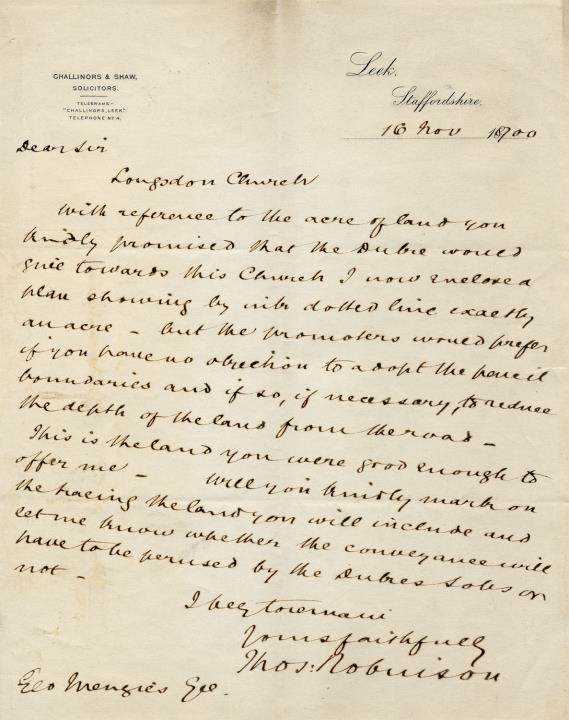 CHALLINORS & SHAW,
SOLICITORS.
TELEGRAMS:-
"CHALLINORS, LEEK."
TELEPHONE No 4.
Leek.
Staffordshire.
16 Nov 1900
Dear Sir
Longsdon Church
With reference to the acre of land you
kindly promised that the Duke would
give towards this Church I now enclose a
plan showing by ink dotted line exactly
an acre – but the promoters would prefer
if you have no objection to adopt the pencil
boundaries and if so, if necessary, to reduce
the depth of the land from the road –
This is the land you were good enough to
offer me – Will you kindly mark on
the tracing the land you will include and
let me know whether the conveyance will
have to be perused by the Dukes Solrs or
not –
I beg to remain
Yours faithfully
Thos: Robinson
Geo Menzies Esq.